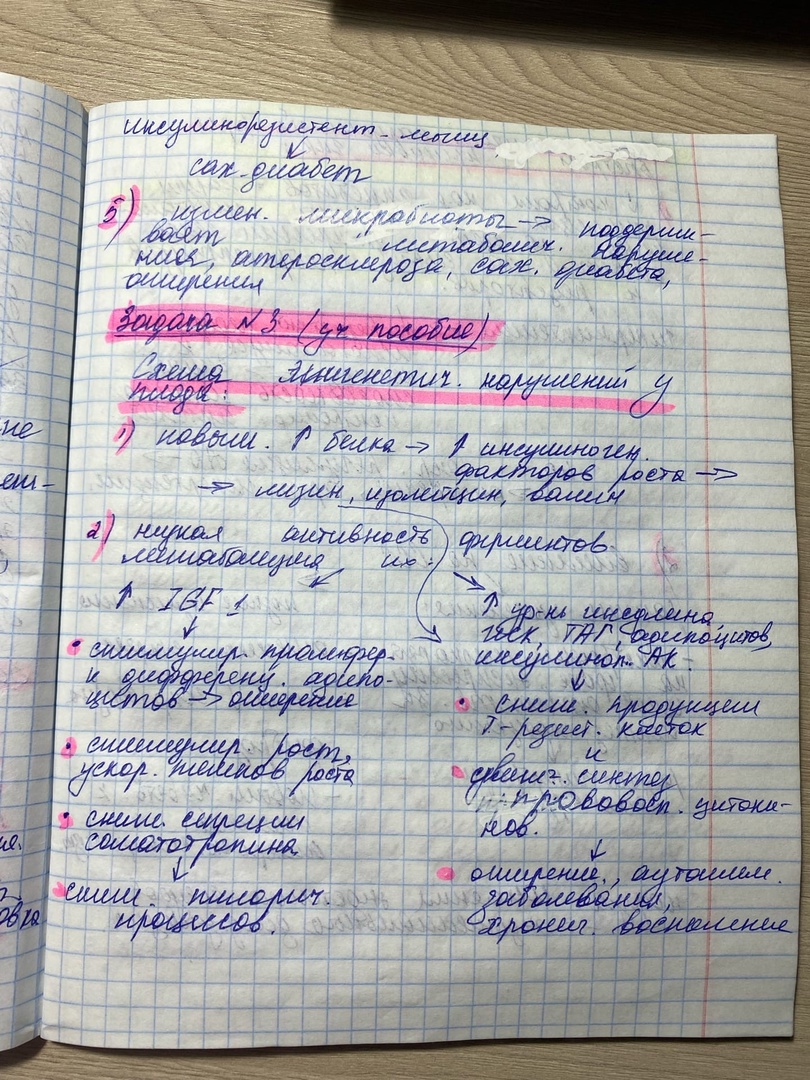 инсулинорезистент-мышц
сах. диабет
5) измен. микробиоты → поддержи-
вает метаболич. наруше-
ния, атеросклероза, сах. диабета,
ожирения
Задача №3 (уч пособие)
Схема эпигенетич. нарушений у
плода:
1) повыш. ↑ белка → ↑ инсулиноген.
факторов роста →
→ лизин, изолейцин, валин
2) низкая активность ферментов
метаболизма их:
↑ IGF 1
• стимулир. пролифер.
и дифференц. адипо-
цитов → ожирение
• стимулир. рост,
ускор. темпов роста
• сниж. секреции
соматотропина
сниж. процессов.
↑ ур-нь инсулина
ТАГ, адипоцитов,
инсулинол. АК.
• сниж. продукции
Т-резист. клеток
и
синтез
провосп. цитоки-
нов.
• ожирение, аутоимм.
заболевания,
хронич. воспаление